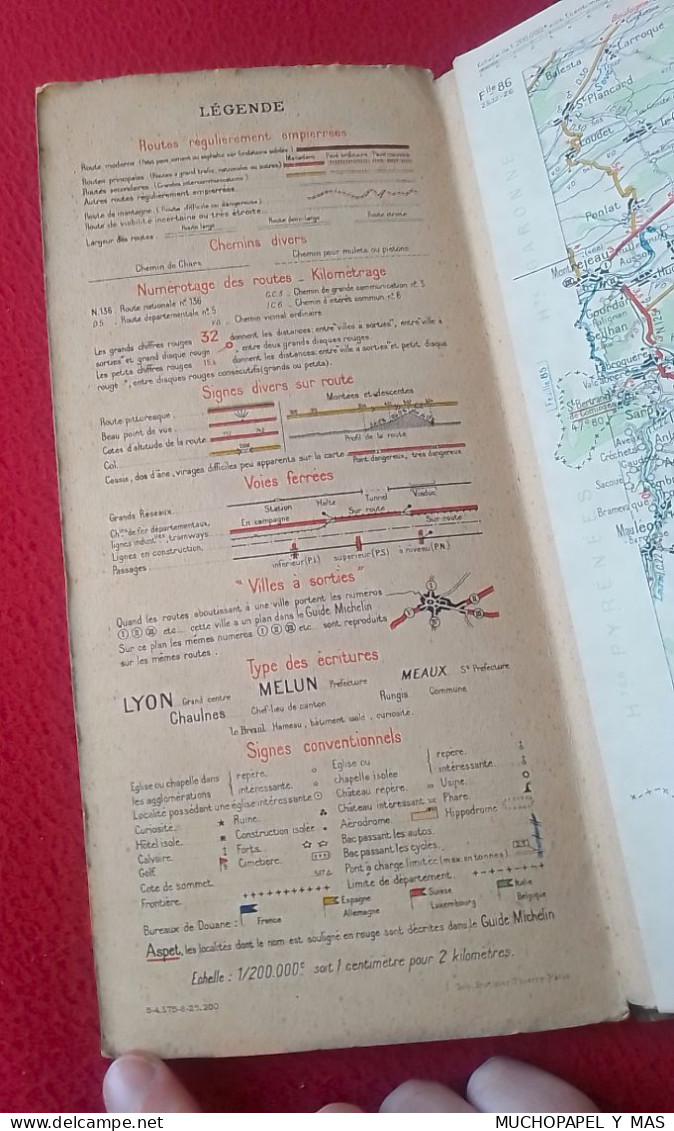 LÉGENDE
Routes régulièrement empierrées
Macadam Pavé ordinaire Pavé mauvais
Routes principales (Routes à grand trafic, nationales ou autres)
Routes secondaires (Grandes intercommunications)
Autres routes régulièrement empierrées
Route de montagne (Route difficile ou dangereuse)
Route de viabilité incertaine ou très étroite
Largeur des routes : Route large Route demi-large Route étroite
Chemins divers
Chemin de Chars Chemin pour mulets ou piétons
Numérotage des routes - Kilométrage
N.136 Route nationale nº 136 G.C.3 Chemin de grande communication nº 3
D.5 Route départementale nº 5 I.C.6 Chemin d'intérêt commun nº 6
V.O Chemin vicinal ordinaire
Les grands chiffres rouges 32 donnent les distances: entre "villes à sorties", entre ville à
sorties" et grand disque rouge, entre deux grands disques rouges.
Les petits chiffres rouges donnent les distances: entre ville à sorties et petit disque
rouge, entre disques rouges consécutifs (grands ou petits).
Signes divers sur route
Montées et descentes
Route pittoresque
Beau point de vue
Cotes d'altitude de la route
Profil de la route
Col
Cassis, dos d'âne, virages difficiles peu apparents sur la carte Point dangereux, très dangereux
Voies ferrées
Grands Réseaux Station Halte Tunnel Viaduc
Chins de fer départementaux, En campagne Sur route
lignes industlles, tramways Sur route
Lignes en construction
Passages inférieur (P.I.) supérieur (P.S) à niveau (P.N.)
"Villes à sorties"
Quand les routes aboutissant à une ville portent les numéros
etc... cette ville a un plan dans le Guide Michelin
Sur ce plan les mêmes numéros etc... sont reproduits
sur les mêmes routes.
Type des écritures
LYON Grand centre MELUN Préfecture MEAUX Ss Préfecture
Chaulnes Chef-lieu de canton Rungis Commune
le Breuil Hameau, bâtiment isolé, curiosité
Signes conventionnels
Eglise ou chapelle dans les agglomérations repère. intéressante.
Localité possédant une église intéressante
Curiosité. Ruine.
Hôtel isolé. Construction isolée
Calvaire. Forts.
Golf. Cimetière.
Cote de sommet. 517
Frontière.
Eglise ou chapelle isolée repère. intéressante.
Château repère. Usine.
Château intéressant Phare.
Aérodrome. Hippodrome
Bac passant les autos.
Bac passant les cycles.
Pont à charge limitée (max. en tonnes)
Limite de département.
Bureaux de Douane : France Espagne Allemagne Suisse Luxembourg Italie Belgique
Aspet, les localités dont le nom est souligné en rouge sont décrites dans le Guide Michelin
Echelle : 1/200.000e soit 1 centimètre pour 2 kilomètres.
Flle 86
Balesta
Larroque
Plancard
Loudet
Ponlat
Ausson
Gourdan
Seilhan
Labroquère
St Bertrand
de Comminges
Créchets
Sacoué
Bramevaque
Mauléon
Hte GARONNE
Htes PYRÉNÉES
MUCHOPAPEL Y MAS